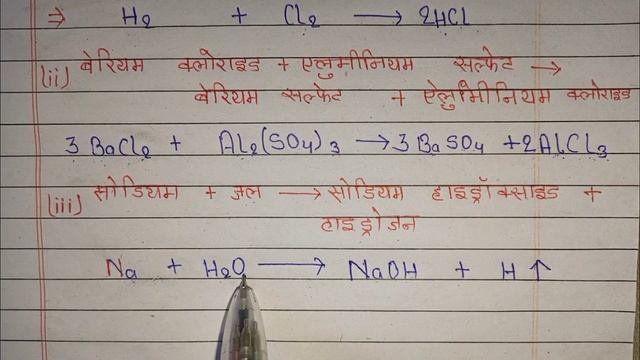 ⇒ H₂ + Cl₂ → 2HCl
(ii) बेरियम क्लोराइड + एलुमीनियम सल्फेट →
बेरियम सल्फेट + ऐलुमिनियम क्लोराइड
3BaCl₂ + Al₂(SO₄)₃ → 3BaSO₄ + 2AlCl₃
(iii) सोडियम + जल → सोडियम हाइड्रॉक्साइड +
हाइड्रोजन
Na + H₂O → NaOH + H↑